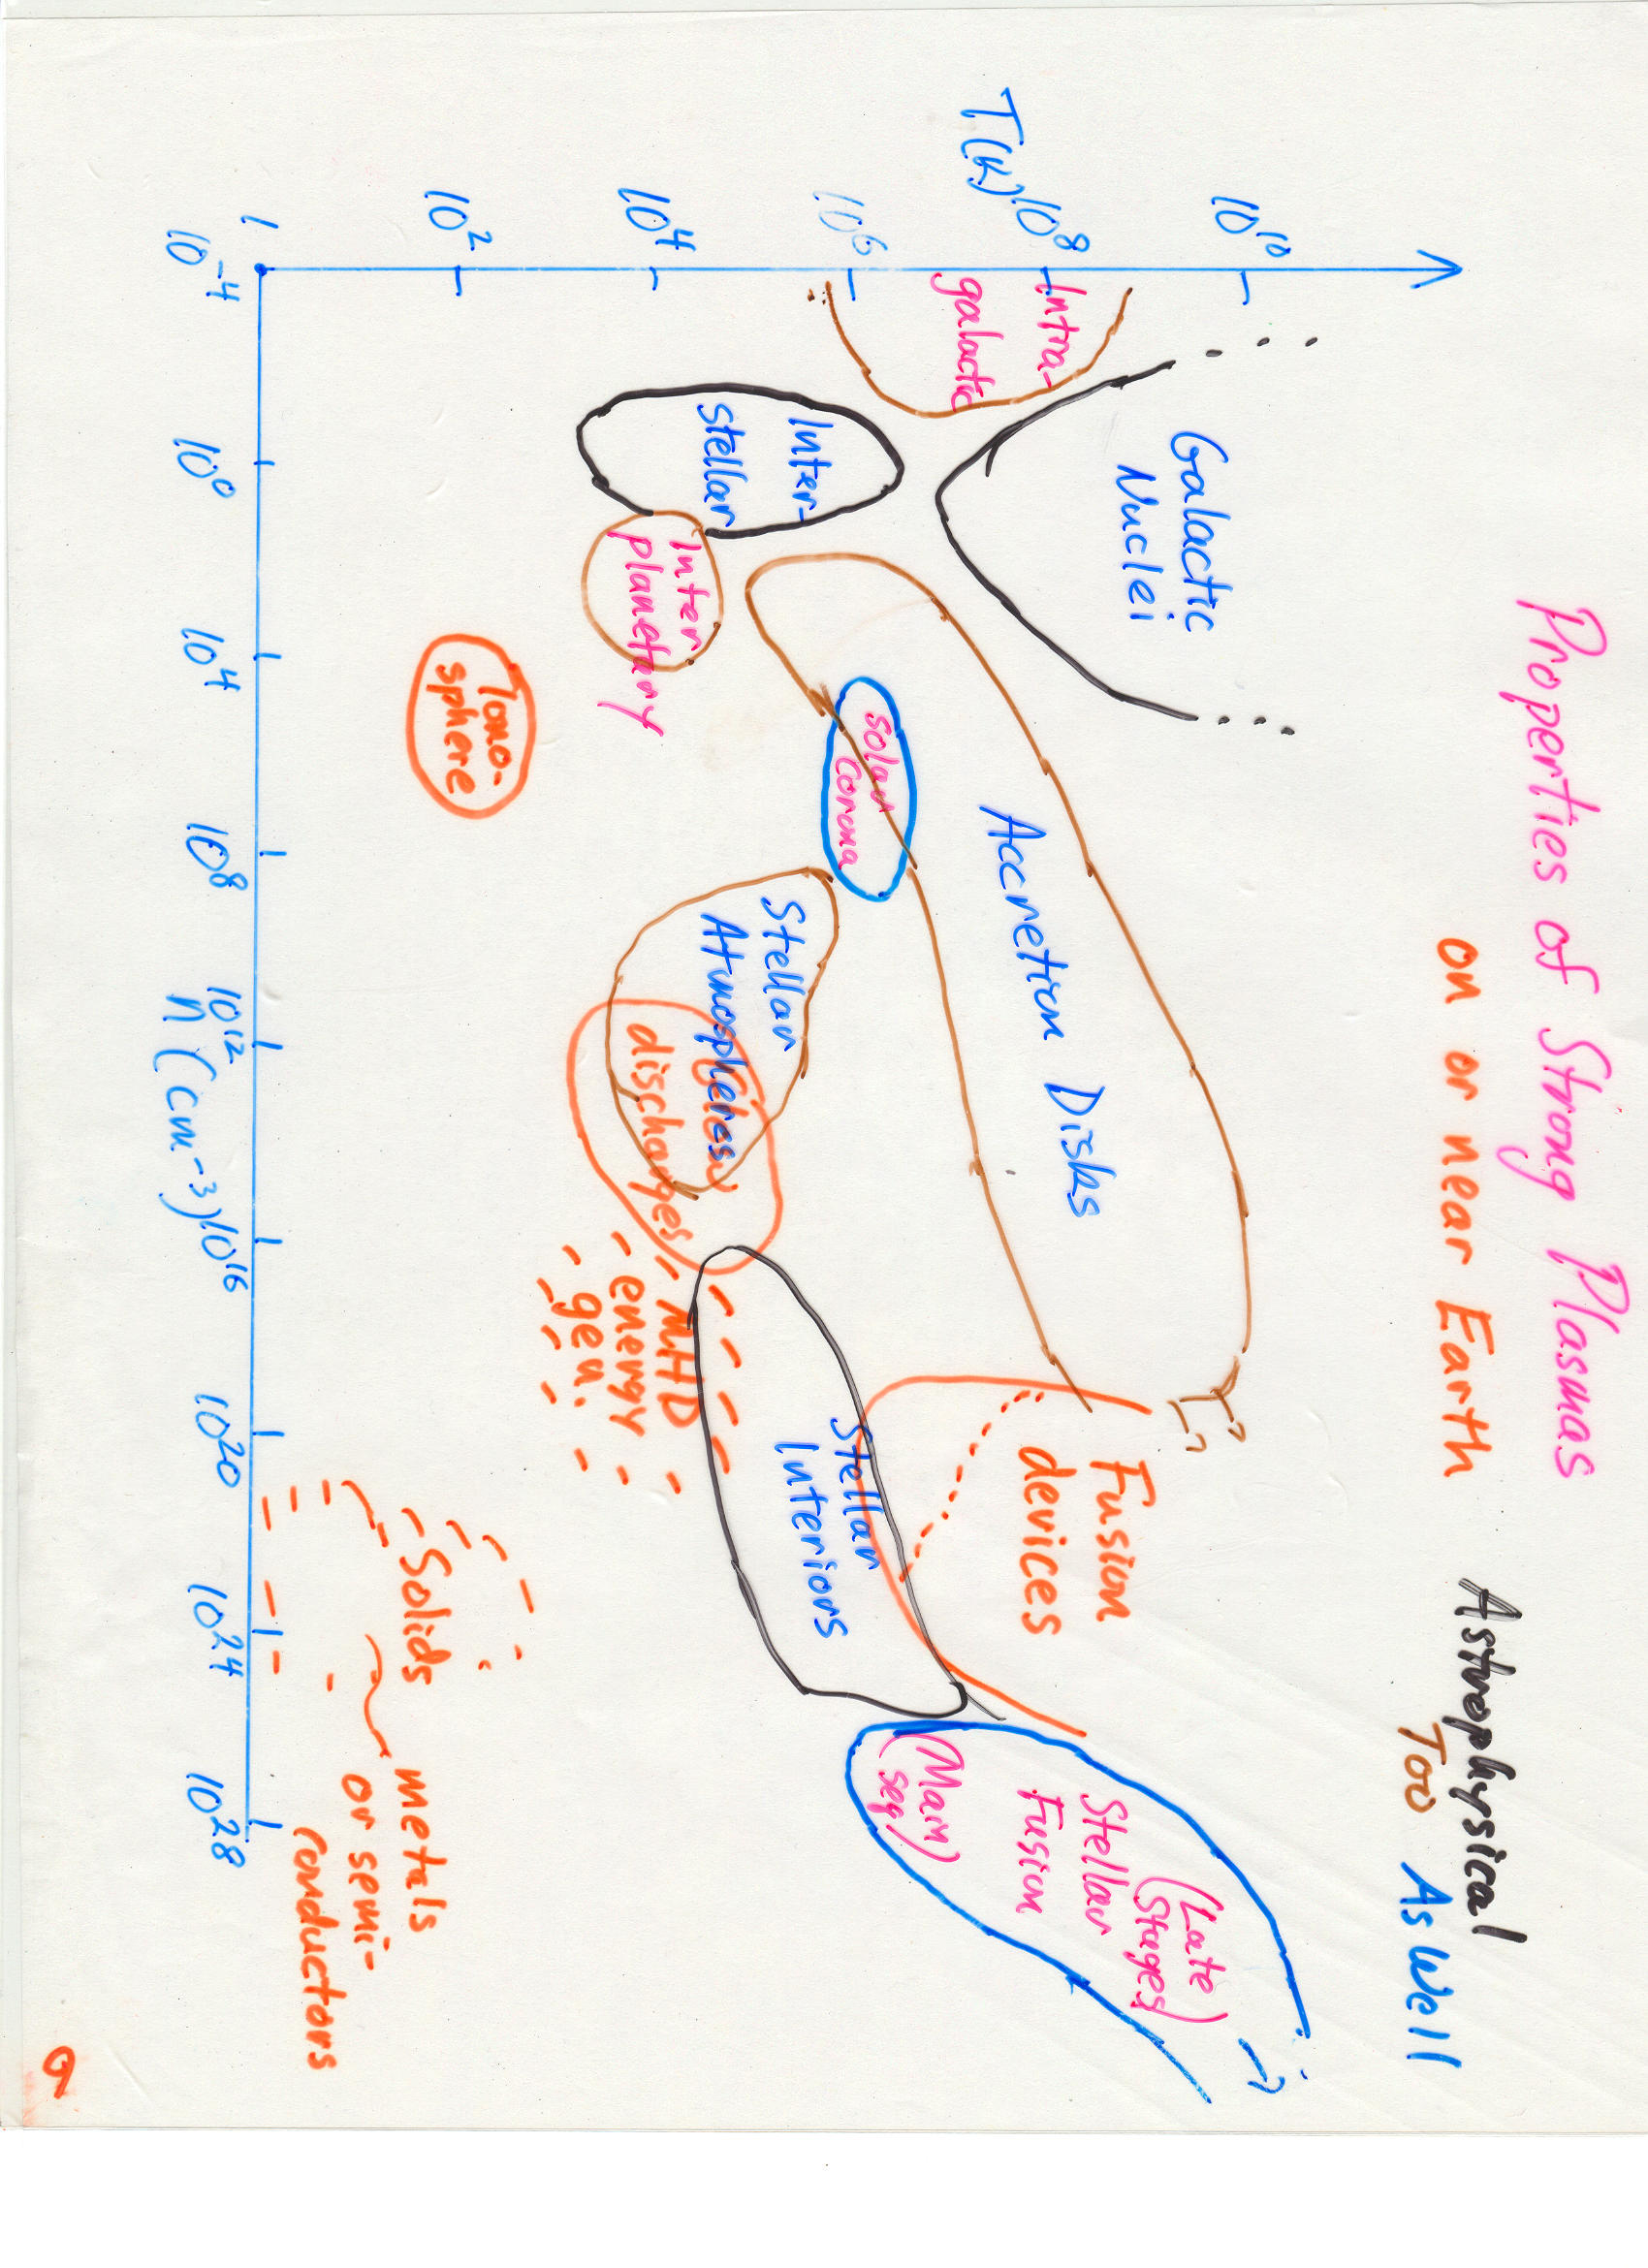 Properties of Strong Plasmas
on or near Earth
Astrophysical
Too As Well
T(K)
10^10
10^8
10^6
10^4
10^2
1
Galactic
Nuclei
Intra-
galactic
Inter-
stellar
Inter
planetary
Iono-
sphere
Solar
corona
Accretion Disks
Stellar
Atmospheres
discharges
MHD
energy
gen.
Fusion
devices
Stellar
Interiors
(Late
Stages)
Stellar
Fusion
(Main
seq)
Solids
metals
or semi-
conductors
10^-4
10^0
10^4
10^8
10^12
10^16
10^20
10^24
10^28
n (cm^-3)